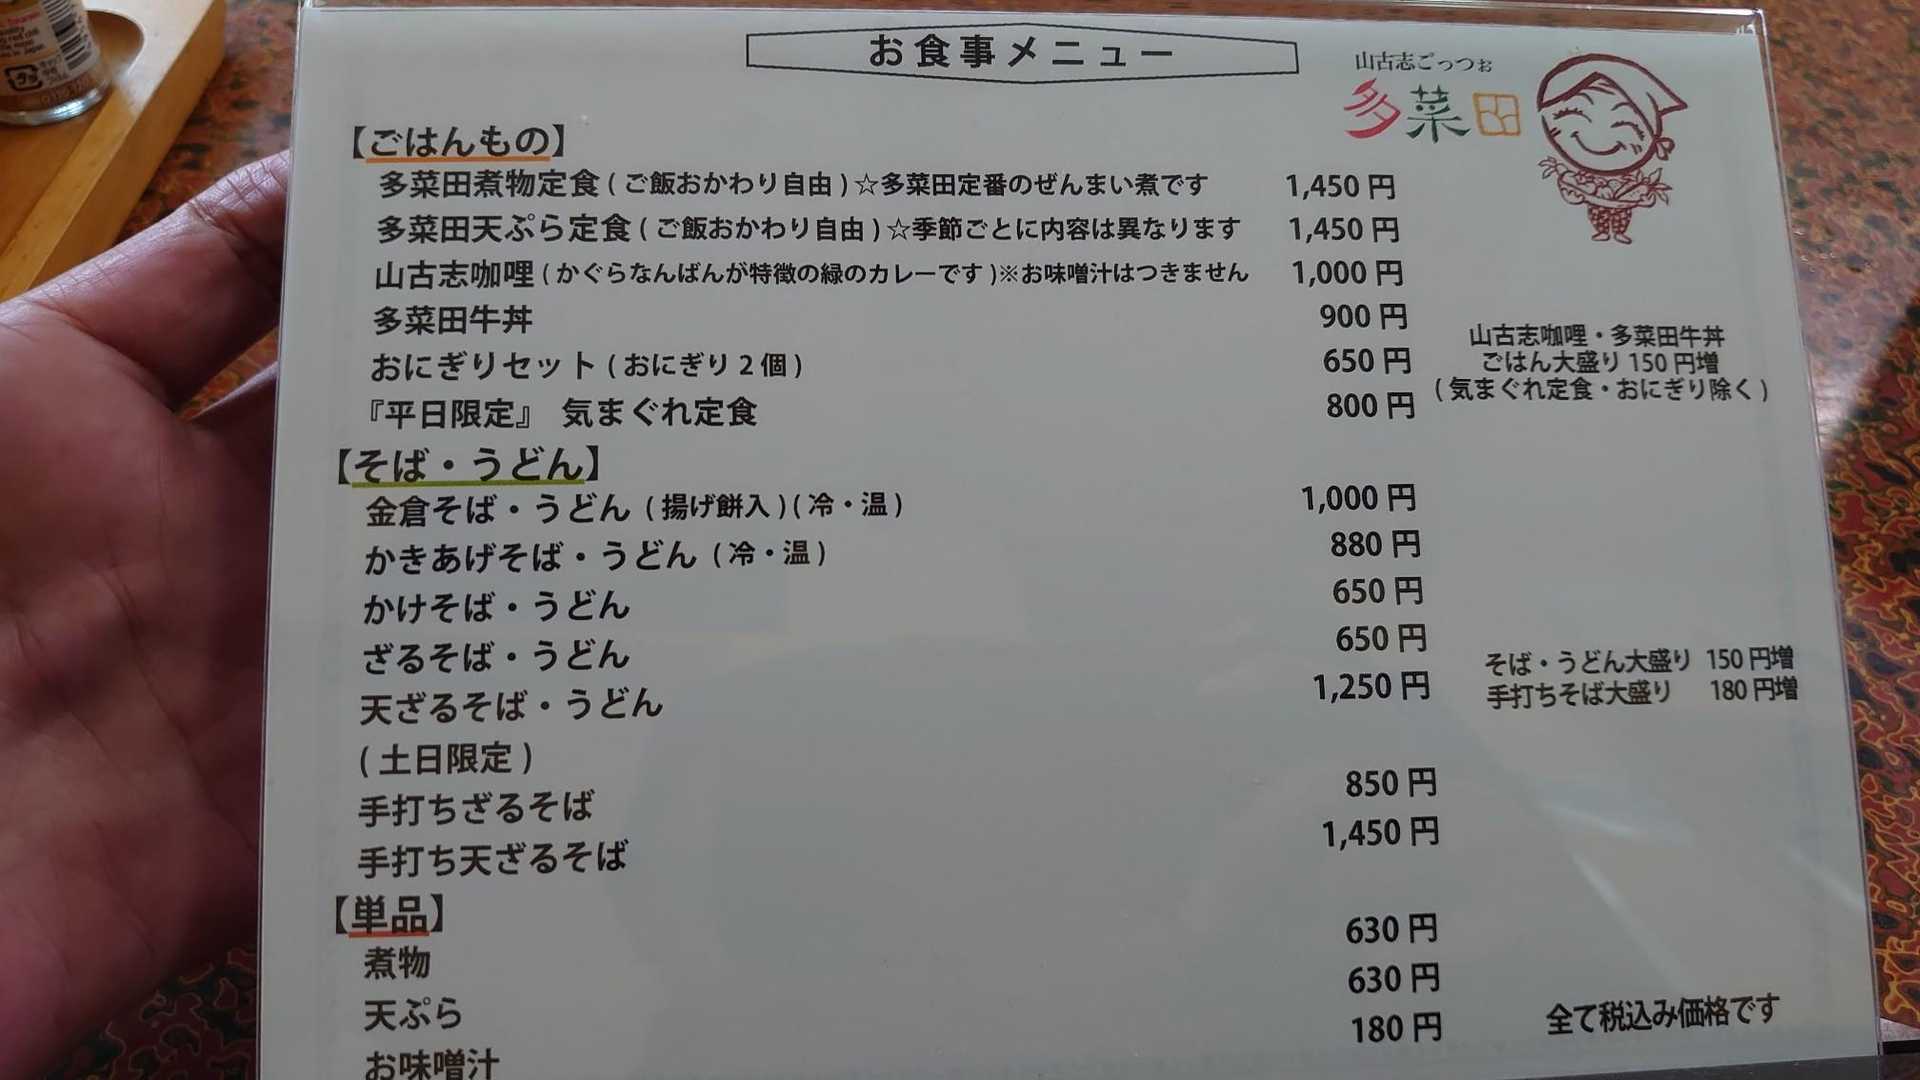 お食事メニュー
山古志ごっつぉ
多菜田
【ごはんもの】
多菜田煮物定食(ご飯おかわり自由)☆多菜田定番のぜんまい煮です 1,450円
多菜田天ぷら定食(ご飯おかわり自由)☆季節ごとに内容は異なります 1,450円
山古志咖哩(かぐらなんばんが特徴の緑のカレーです)※お味噌汁はつきません 1,000円
多菜田牛丼 900円
おにぎりセット(おにぎり2個) 650円
『平日限定』 気まぐれ定食 800円
山古志咖哩・多菜田牛丼
ごはん大盛り150円増
(気まぐれ定食・おにぎり除く)
【そば・うどん】
金倉そば・うどん(揚げ餅入)(冷・温) 1,000円
かきあげそば・うどん(冷・温) 880円
かけそば・うどん 650円
ざるそば・うどん 650円
天ざるそば・うどん 1,250円
そば・うどん大盛り 150円増
手打ちそば大盛り 180円増
(土日限定)
手打ちざるそば 850円
手打ち天ざるそば 1,450円
【単品】
煮物 630円
天ぷら 630円
お味噌汁 180円
全て税込み価格です